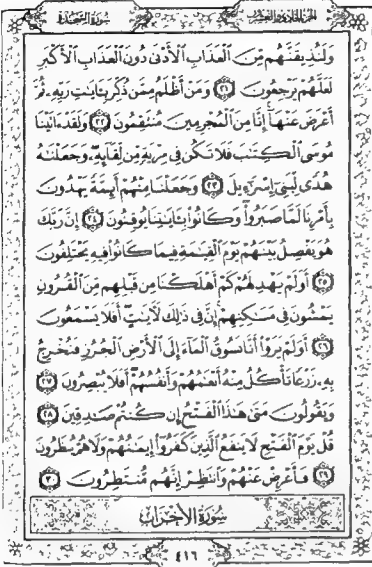 سُورَةُ السَّجْدَةِ الجزء الحادي والعشرون
وَلَنُذِيقَنَّهُم مِّنَ ٱلْعَذَابِ ٱلْأَدْنَىٰ دُونَ ٱلْعَذَابِ ٱلْأَكْبَرِ
لَعَلَّهُمْ يَرْجِعُونَ ٢١ وَمَنْ أَظْلَمُ مِمَّن ذُكِّرَ بِـَٔايَـٰتِ رَبِّهِۦ ثُمَّ
أَعْرَضَ عَنْهَآ إِنَّا مِنَ ٱلْمُجْرِمِينَ مُنتَقِمُونَ ٢٢ وَلَقَدْ ءَاتَيْنَا
مُوسَى ٱلْكِتَـٰبَ فَلَا تَكُن فِى مِرْيَةٍ مِّن لِّقَآئِهِۦ وَجَعَلْنَـٰهُ
هُدًى لِّبَنِىٓ إِسْرَٰٓءِيلَ ٢٣ وَجَعَلْنَا مِنْهُمْ أَئِمَّةً يَهْدُونَ
بِأَمْرِنَا لَمَّا صَبَرُوا۟ وَكَانُوا۟ بِـَٔايَـٰتِنَا يُوقِنُونَ ٢٤ إِنَّ رَبَّكَ
هُوَ يَفْصِلُ بَيْنَهُمْ يَوْمَ ٱلْقِيَـٰمَةِ فِيمَا كَانُوا۟ فِيهِ يَخْتَلِفُونَ
٢٥ أَوَلَمْ يَهْدِ لَهُمْ كَمْ أَهْلَكْنَا مِن قَبْلِهِم مِّنَ ٱلْقُرُونِ
يَمْشُونَ فِى مَسَـٰكِنِهِمْ إِنَّ فِى ذَٰلِكَ لَـَٔايَـٰتٍ أَفَلَا يَسْمَعُونَ
٢٦ أَوَلَمْ يَرَوْا۟ أَنَّا نَسُوقُ ٱلْمَآءَ إِلَى ٱلْأَرْضِ ٱلْجُرُزِ فَنُخْرِجُ
بِهِۦ زَرْعًا تَأْكُلُ مِنْهُ أَنْعَـٰمُهُمْ وَأَنفُسُهُمْ أَفَلَا يُبْصِرُونَ ٢٧
وَيَقُولُونَ مَتَىٰ هَـٰذَا ٱلْفَتْحُ إِن كُنتُمْ صَـٰدِقِينَ ٢٨
قُلْ يَوْمَ ٱلْفَتْحِ لَا يَنفَعُ ٱلَّذِينَ كَفَرُوٓا۟ إِيمَـٰنُهُمْ وَلَا هُمْ يُنظَرُونَ
٢٩ فَأَعْرِضْ عَنْهُمْ وَٱنتَظِرْ إِنَّهُم مُّنتَظِرُونَ ٣٠
سُورَةُ الأَحْزَابِ
٤١٦